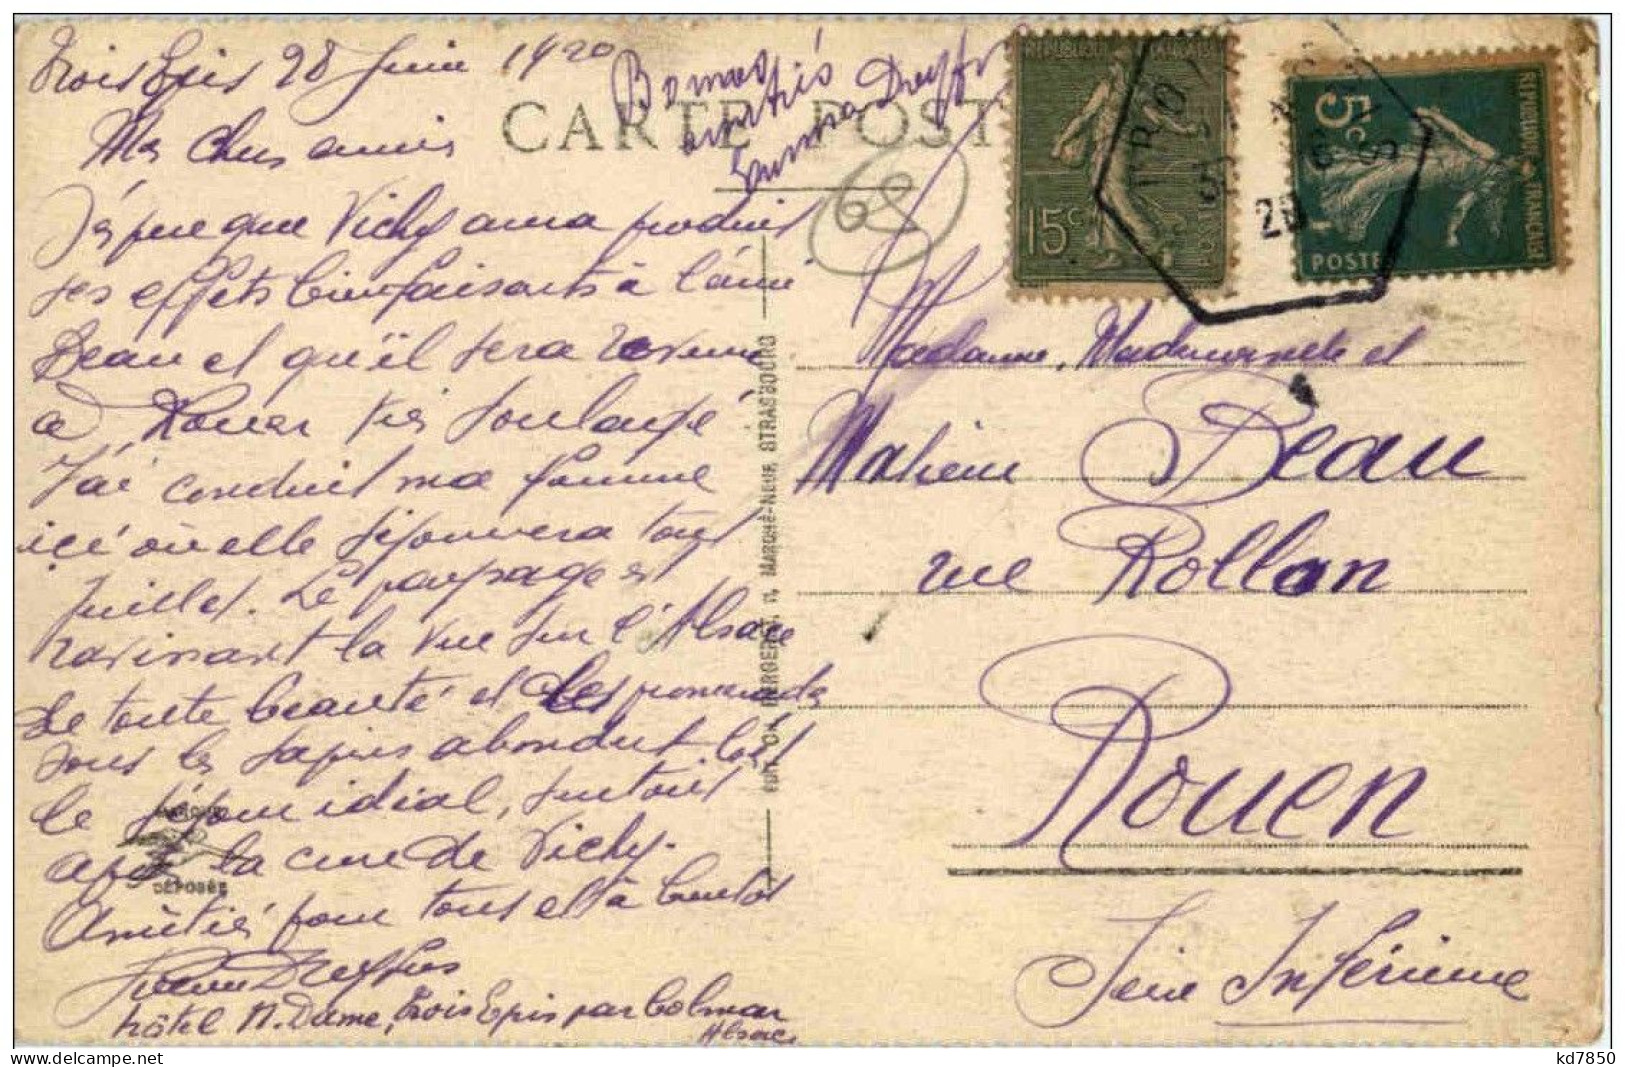 Trois Epis 28 Juin 1920
Mes chers amis
J'espère que Vichy aura produit
ses effets bienfaisants à l'ami
Beau et qu'il sera revenu
à Rouen très soulagé
J'ai conduit ma femme
ici où elle séjournera tout
Juillet. Le paysage est
ravissant la vue sur l'Alsace
de toute beauté et les promenades
sous les sapins abondent c'est
le séjour idéal, surtout
après la cure de Vichy.
Amitiés pour tous et à bientôt
Dreyfus
hôtel N. Dame, Trois Epis par Colmar
Alsace
Bonnes
amitiés
Dreyfus
CARTE POST
62
15c
POSTES
5c
POSTES
REPUBLIQUE FRANÇAISE
TRO
20
6
STRASBOURG
MARCHÉ-NEUF
DÉPOSÉE
Madame, Mademoiselle et
Mathieu Beau
rue Rollon
Rouen
Seine Inférieure
kd7850